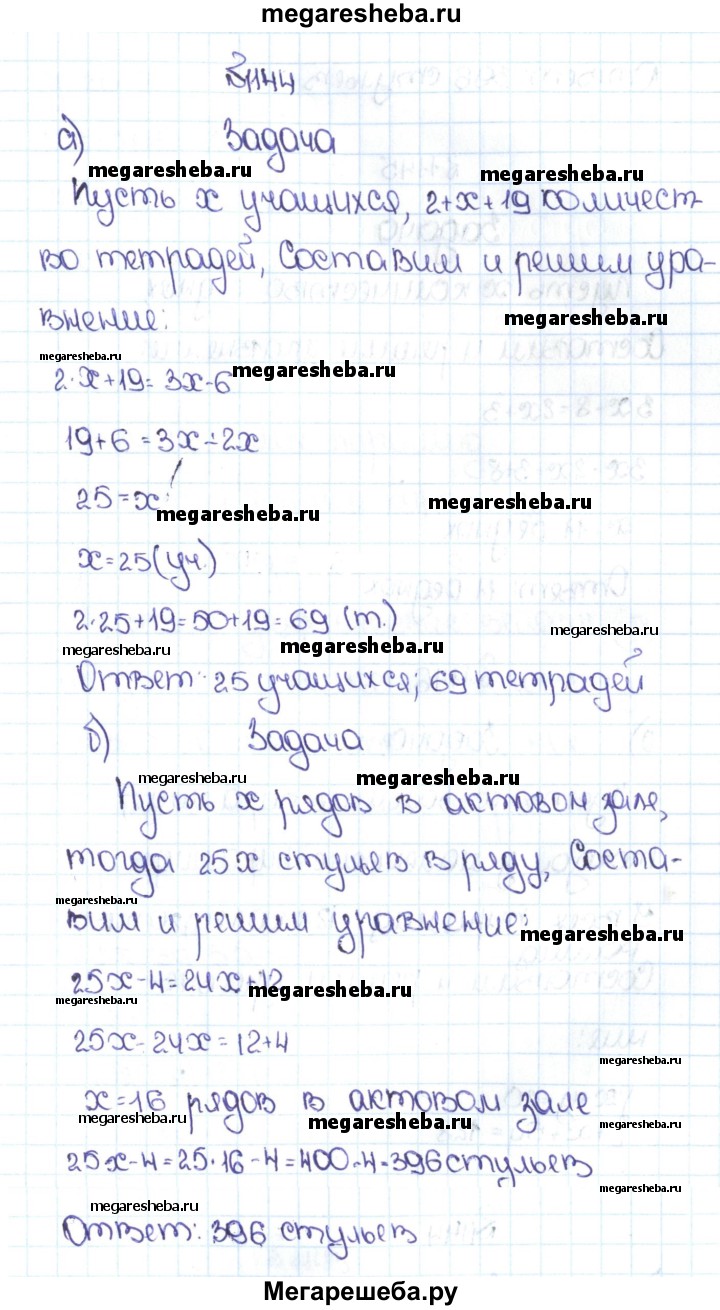 megaresheba.ru
№1144
а) Задача
megaresheba.ru megaresheba.ru
Пусть x учащихся, 2+x+19 количест-
во тетрадей, Составим и решим ура-
внение:
megaresheba.ru
megaresheba.ru
megaresheba.ru
2·x+19=3x-6
19+6=3x-2x
25=x
megaresheba.ru
megaresheba.ru
x=25(уч.)
2·25+19=50+19=69 (т.)
megaresheba.ru
megaresheba.ru
megaresheba.ru
Ответ: 25 учащихся; 69 тетрадей
б) Задача
megaresheba.ru megaresheba.ru
Пусть x рядов в актовом зале,
тогда 25x стульев в ряду, Соста-
megaresheba.ru
вим и решим уравнение:
megaresheba.ru
25x-4=24x+12
megaresheba.ru
megaresheba.ru
25x-24x=12+4
megaresheba.ru
x=16 рядов в актовом зале
megaresheba.ru megaresheba.ru megaresheba.ru
25x-4=25·16-4=400-4=396 стульев
megaresheba.ru
megaresheba.ru
Ответ: 396 стульев
Мегарешеба.ру